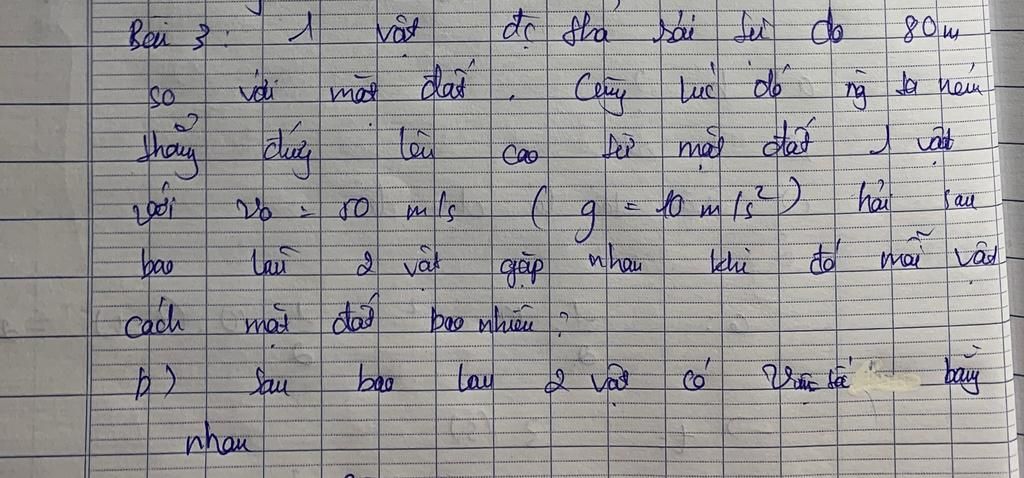 Bài 3: 1 vật đc thả rơi tự do 80m
so với mặt đất. Cũng lúc đó ng ta ném
thẳng đứng lên cao từ mặt đất 1 vật
với v0 = 80 m/s ( g = 10 m/s²) hỏi sau
bao lâu 2 vật gặp nhau khi đó mỗi vật
cách mặt đất bao nhiêu?
b) Sau bao lau 2 vật có bằng
nhau